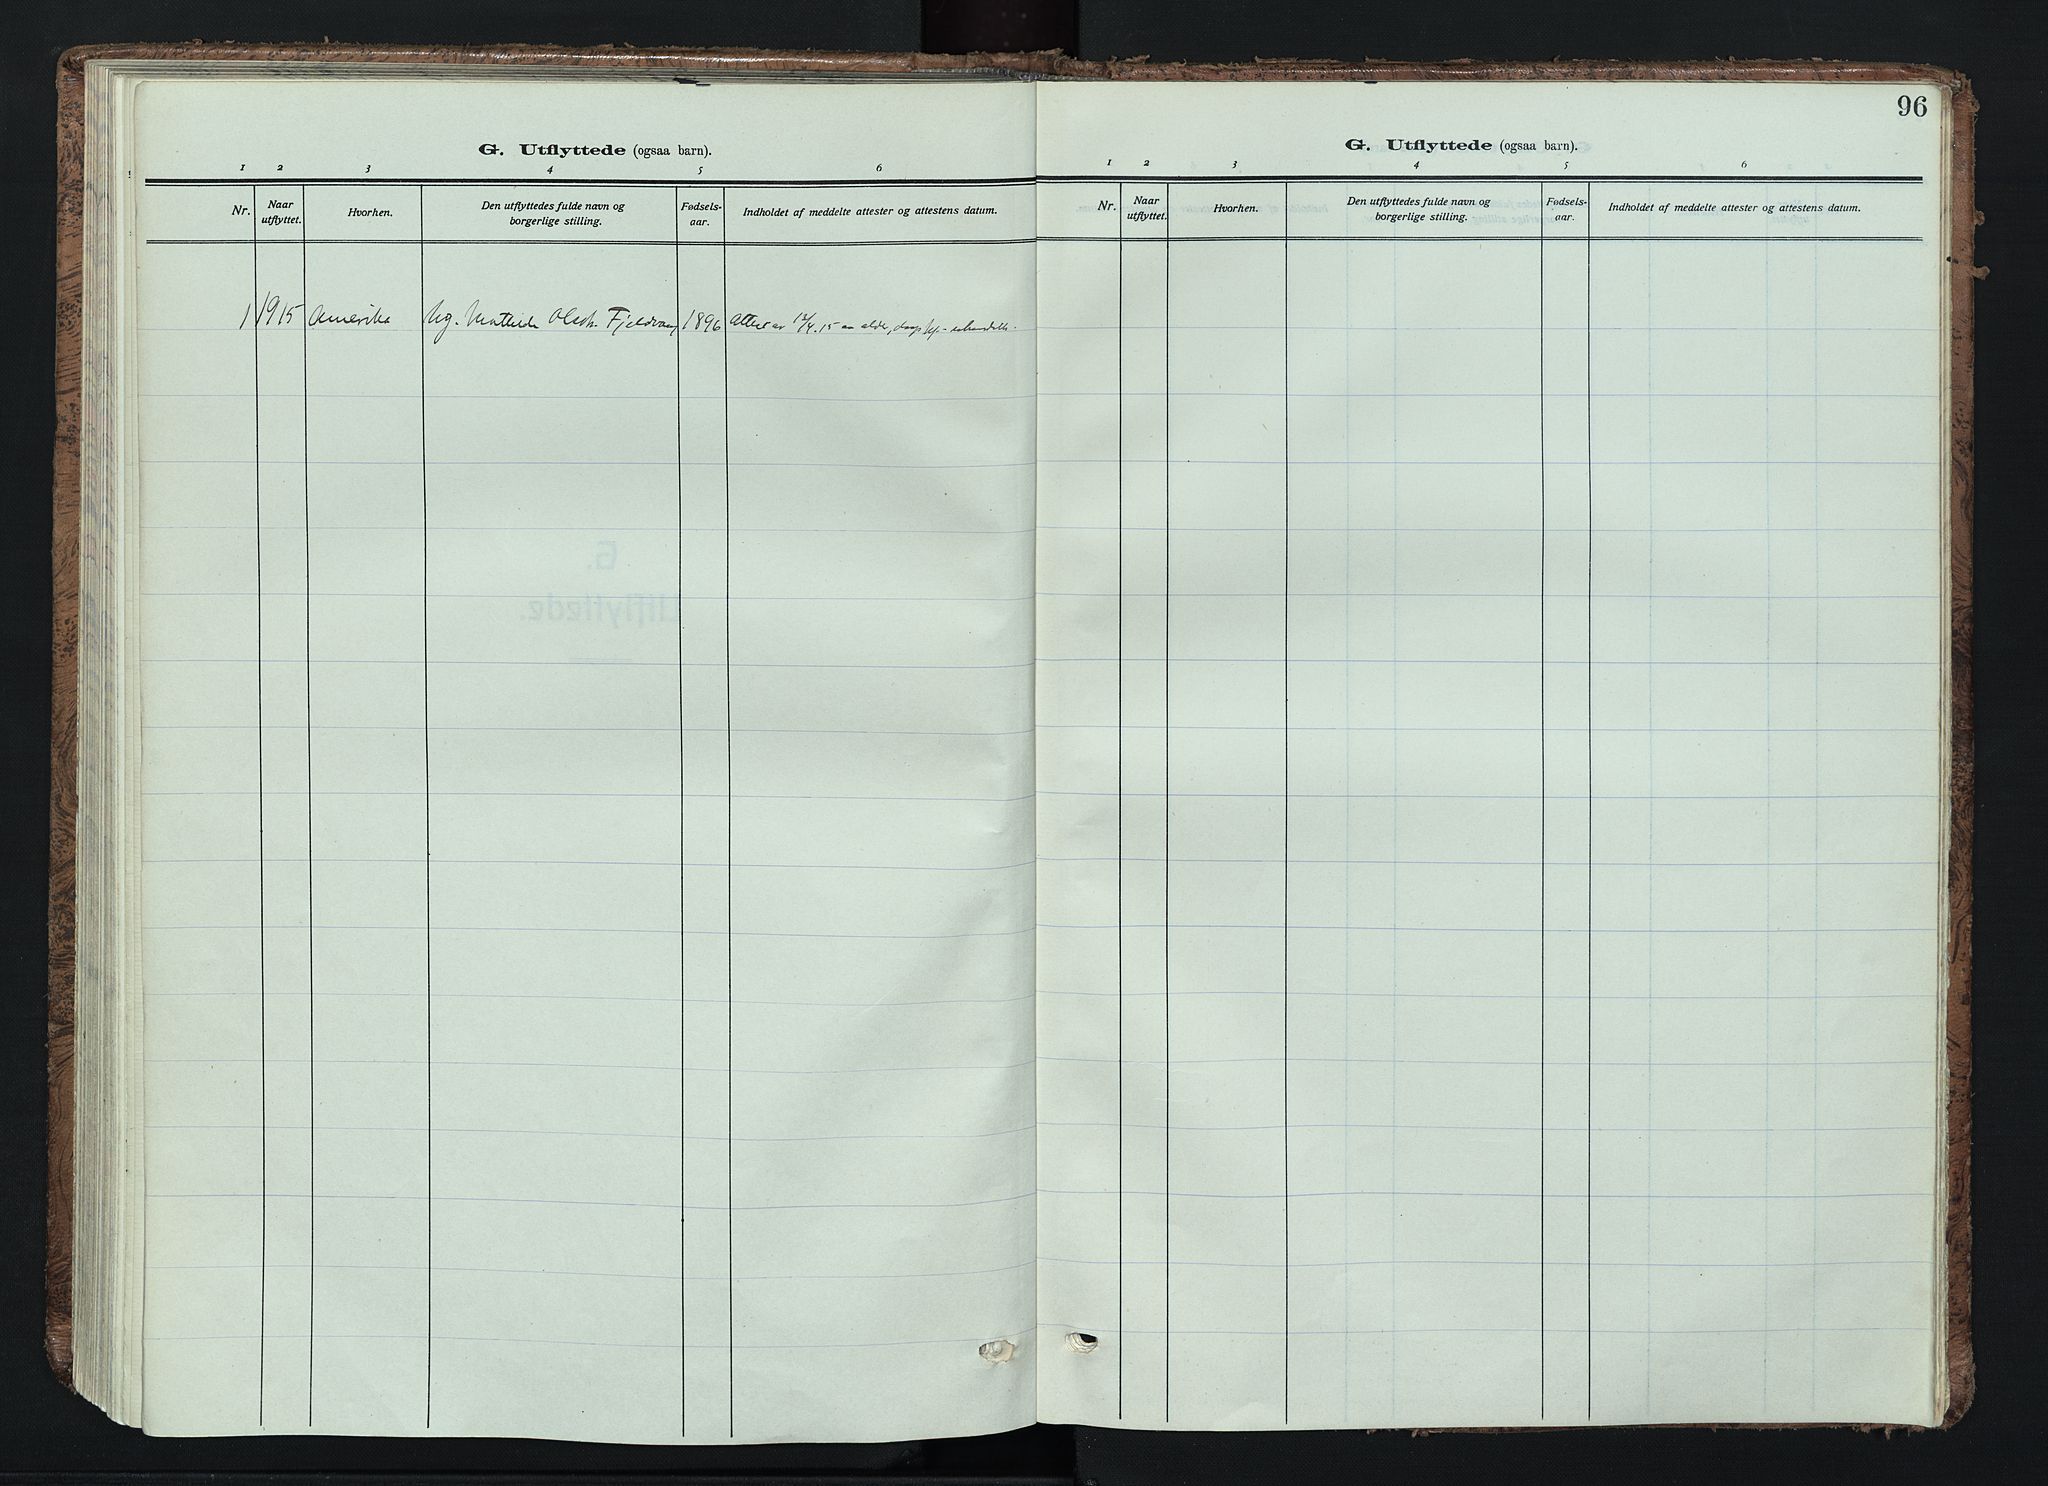 G. Utflyttede (ogsaa barn).
1 2 3 4 5 6
Nr. Naar utflyttet. Hvorhen. Den utflyttedes fulde navn og borgerlige stilling. Fødsels-aar. Indholdet af meddelte attester og attestens datum.
1 1915 Amerika Ug. Mathilde Olsdt. Fjeldvang 1896 Attest av 12/4.15 om alder, daap
96
G. Utflyttede (ogsaa barn).
1 2 3 4 5 6
Nr. Naar utflyttet. Hvorhen. Den utflyttedes fulde navn og borgerlige stilling. Fødsels-aar. Indholdet af meddelte attester og attestens datum.